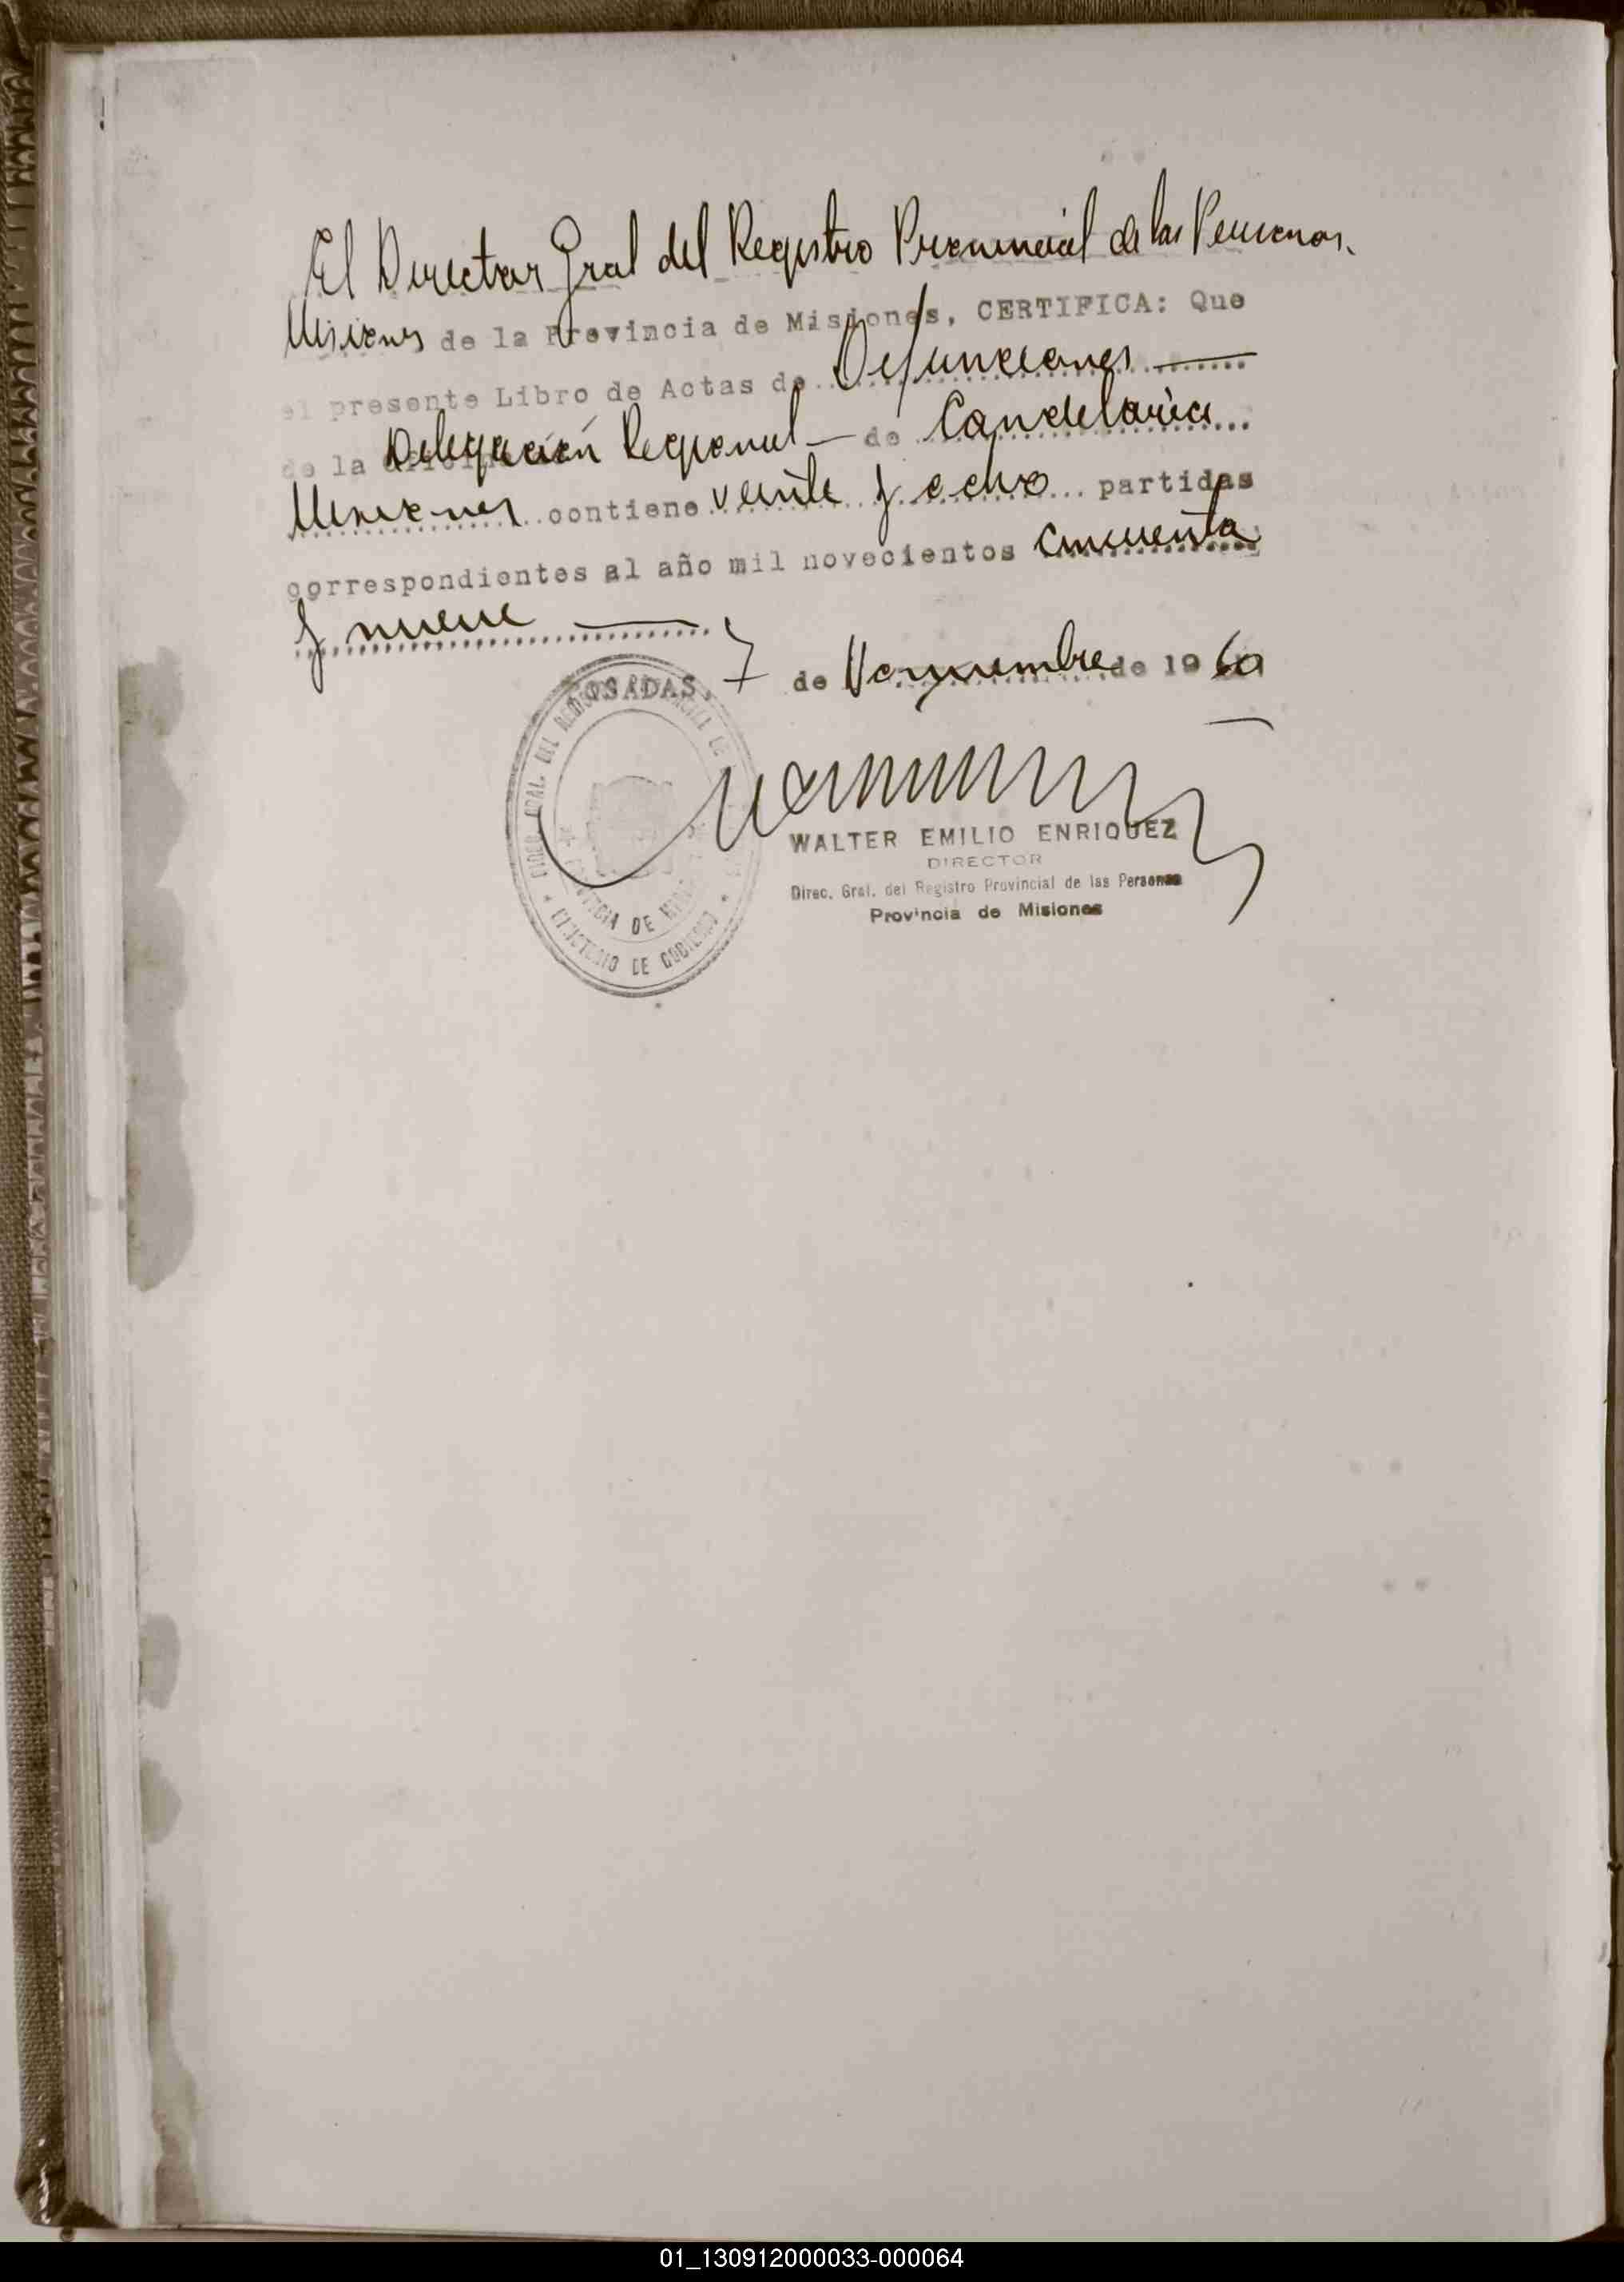 El Director Gral del Registro Provincial de las Personas.
Misiones de la Provincia de Misiones, CERTIFICA: Que
el presente Libro de Actas de Defunciones
de la Delegación Regional de Candelaria
Misiones contiene veinte y ocho partidas
correspondientes al año mil novecientos cincuenta
y nueve
POSADAS, 7 de Noviembre de 1960
WALTER EMILIO ENRIQUEZ
DIRECTOR
Direc. Gral. del Registro Provincial de las Personas
Provincia de Misiones
MINISTERIO DE GOBIERNO
01_130912000033-000064